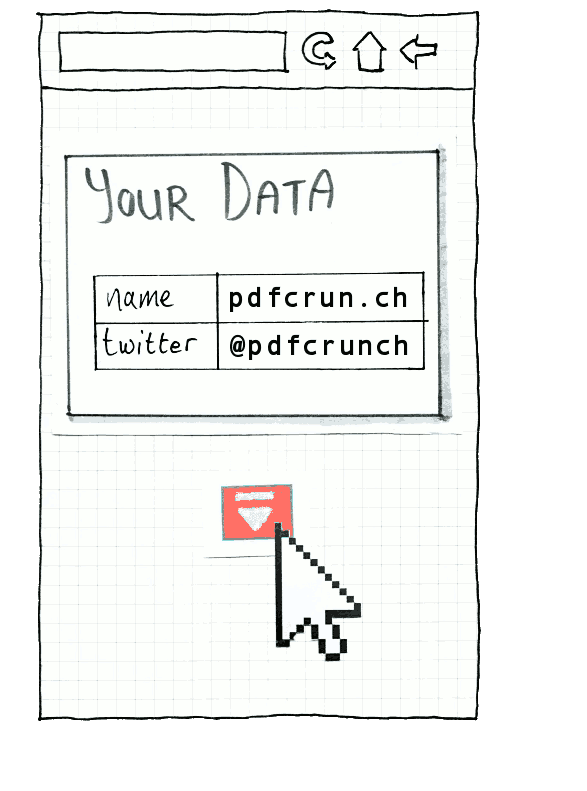 YOUR DATA
name pdfcrun.ch
twitter @pdfcrunch